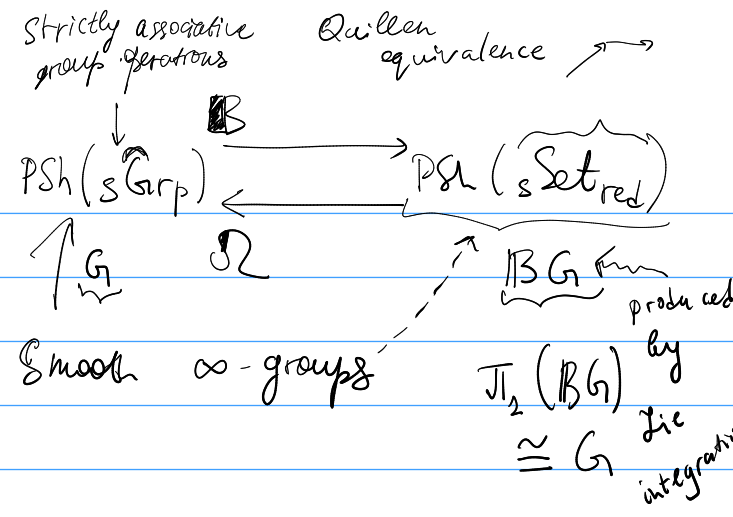 Strictly associative
group operations
Quillen
equivalence
B
PSh(sGrp)
PSh(sSet_red)
G
Ω
BG
produced
by
Lie
Smooth ∞-groups
π_1(BG)
≅ G